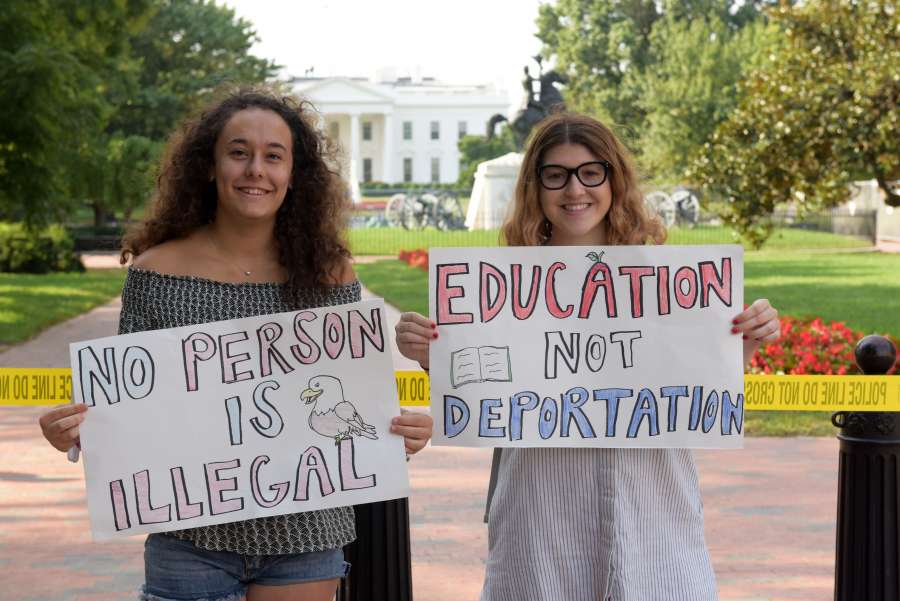 NO PERSON
IS
ILLEGAL
EDUCATION
NOT
DEPORTATION
DO NO
POLICE LINE DO NOT CROSS